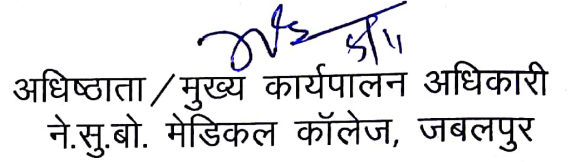 5/11
अधिष्ठाता / मुख्य कार्यपालन अधिकारी
ने.सु.बो. मेडिकल कॉलेज, जबलपुर